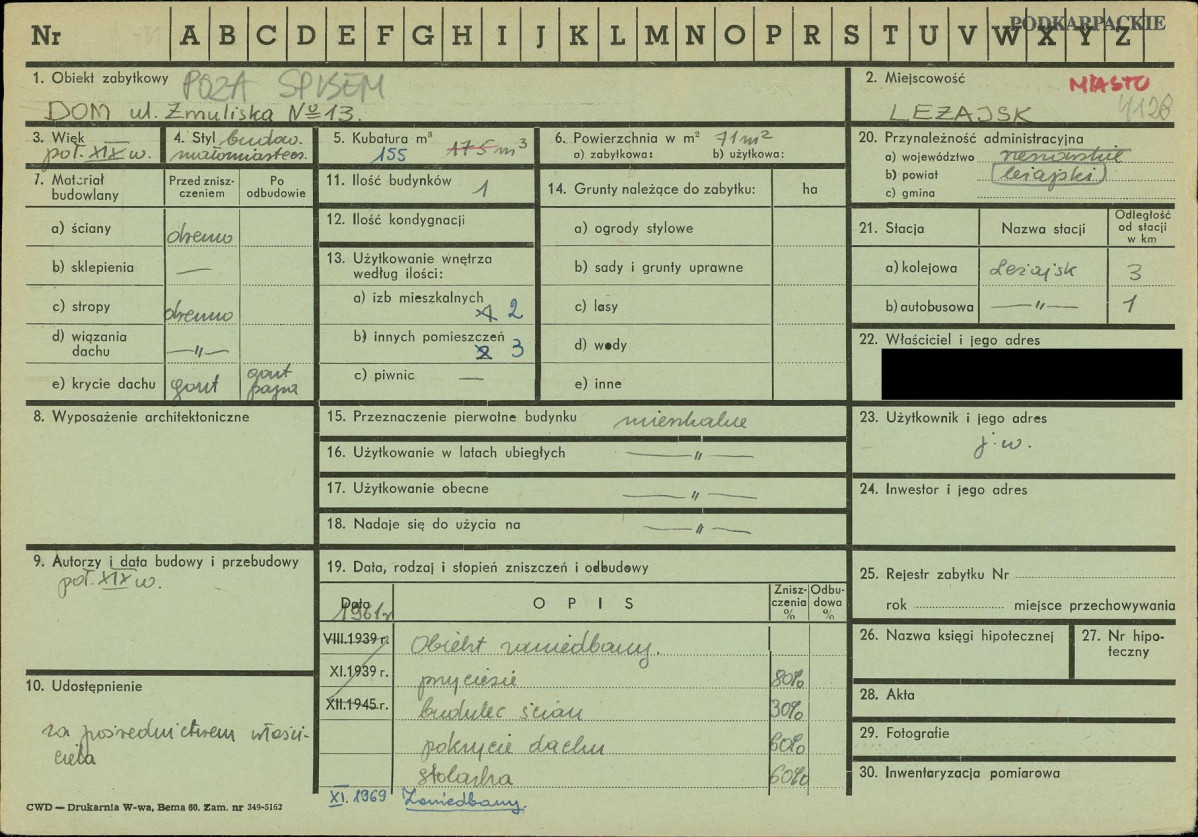 PODKARPACKIE
Nr A B C D E F G H I J K L M N O P R S T U V W X Y Z
1. Obiekt zabytkowy POZA SPISEM
DOM ul. Żmuliska Nº 13.
2. Miejscowość MIASTO
LEŻAJSK 4128
3. Więk
poł. XIX w.
4. Styl budow.
małomiasteczk.
5. Kubatura m³
155 175 m³
6. Powierzchnia w m² 71 m²
a) zabytkowa: b) użytkowa:
20. Przynależność administracyjna
a) województwo rzeszowskie
b) powiat leżajski
c) gmina
7. Materiał budowlany
Przed zniszczeniem
Po odbudowie
a) ściany drewno
b) sklepienia —
c) stropy drewno
d) wiązania dachu —„—
e) krycie dachu gont gont papa
11. Ilość budynków 1
12. Ilość kondygnacji
13. Użytkowanie wnętrza według ilości:
a) izb mieszkalnych 2
b) innych pomieszczeń 2 3
c) piwnic —
14. Grunty należące do zabytku: ha
a) ogrody stylowe
b) sady i grunty uprawne
c) lasy
d) wody
e) inne
21. Stacja Nazwa stacji Odległość od stacji w km
a) kolejowa Leżajsk 3
b) autobusowa —„— 1
22. Właściciel i jego adres
8. Wyposażenie architektoniczne
15. Przeznaczenie pierwotne budynku mieszkalne
16. Użytkowanie w latach ubiegłych —„—
17. Użytkowanie obecne —„—
18. Nadaje się do użycia na —„—
23. Użytkownik i jego adres
j.w.
24. Inwestor i jego adres
9. Autorzy i data budowy i przebudowy
poł. XIX w.
19. Data, rodzaj i stopień zniszczeń i odbudowy
Data OPIS Zniszczenia % Odbudowa %
1961 r
VIII.1939 r. Obiekt zaniedbany.
XI.1939 r. przyciesie 80%
XII.1945 r. budulec ścian 30%
pokrycie dachu 60%
stolarka 60%
XI. 1969 Zaniedbany.
25. Rejestr zabytku Nr
rok miejsce przechowywania
26. Nazwa księgi hipotecznej
27. Nr hipoteczny
10. Udostępnienie
za pośrednictwem właści-
ciela
28. Akta
29. Fotografie
30. Inwentaryzacja pomiarowa
CWD — Drukarnia W-wa, Bema 60. Zam. nr 349-5162